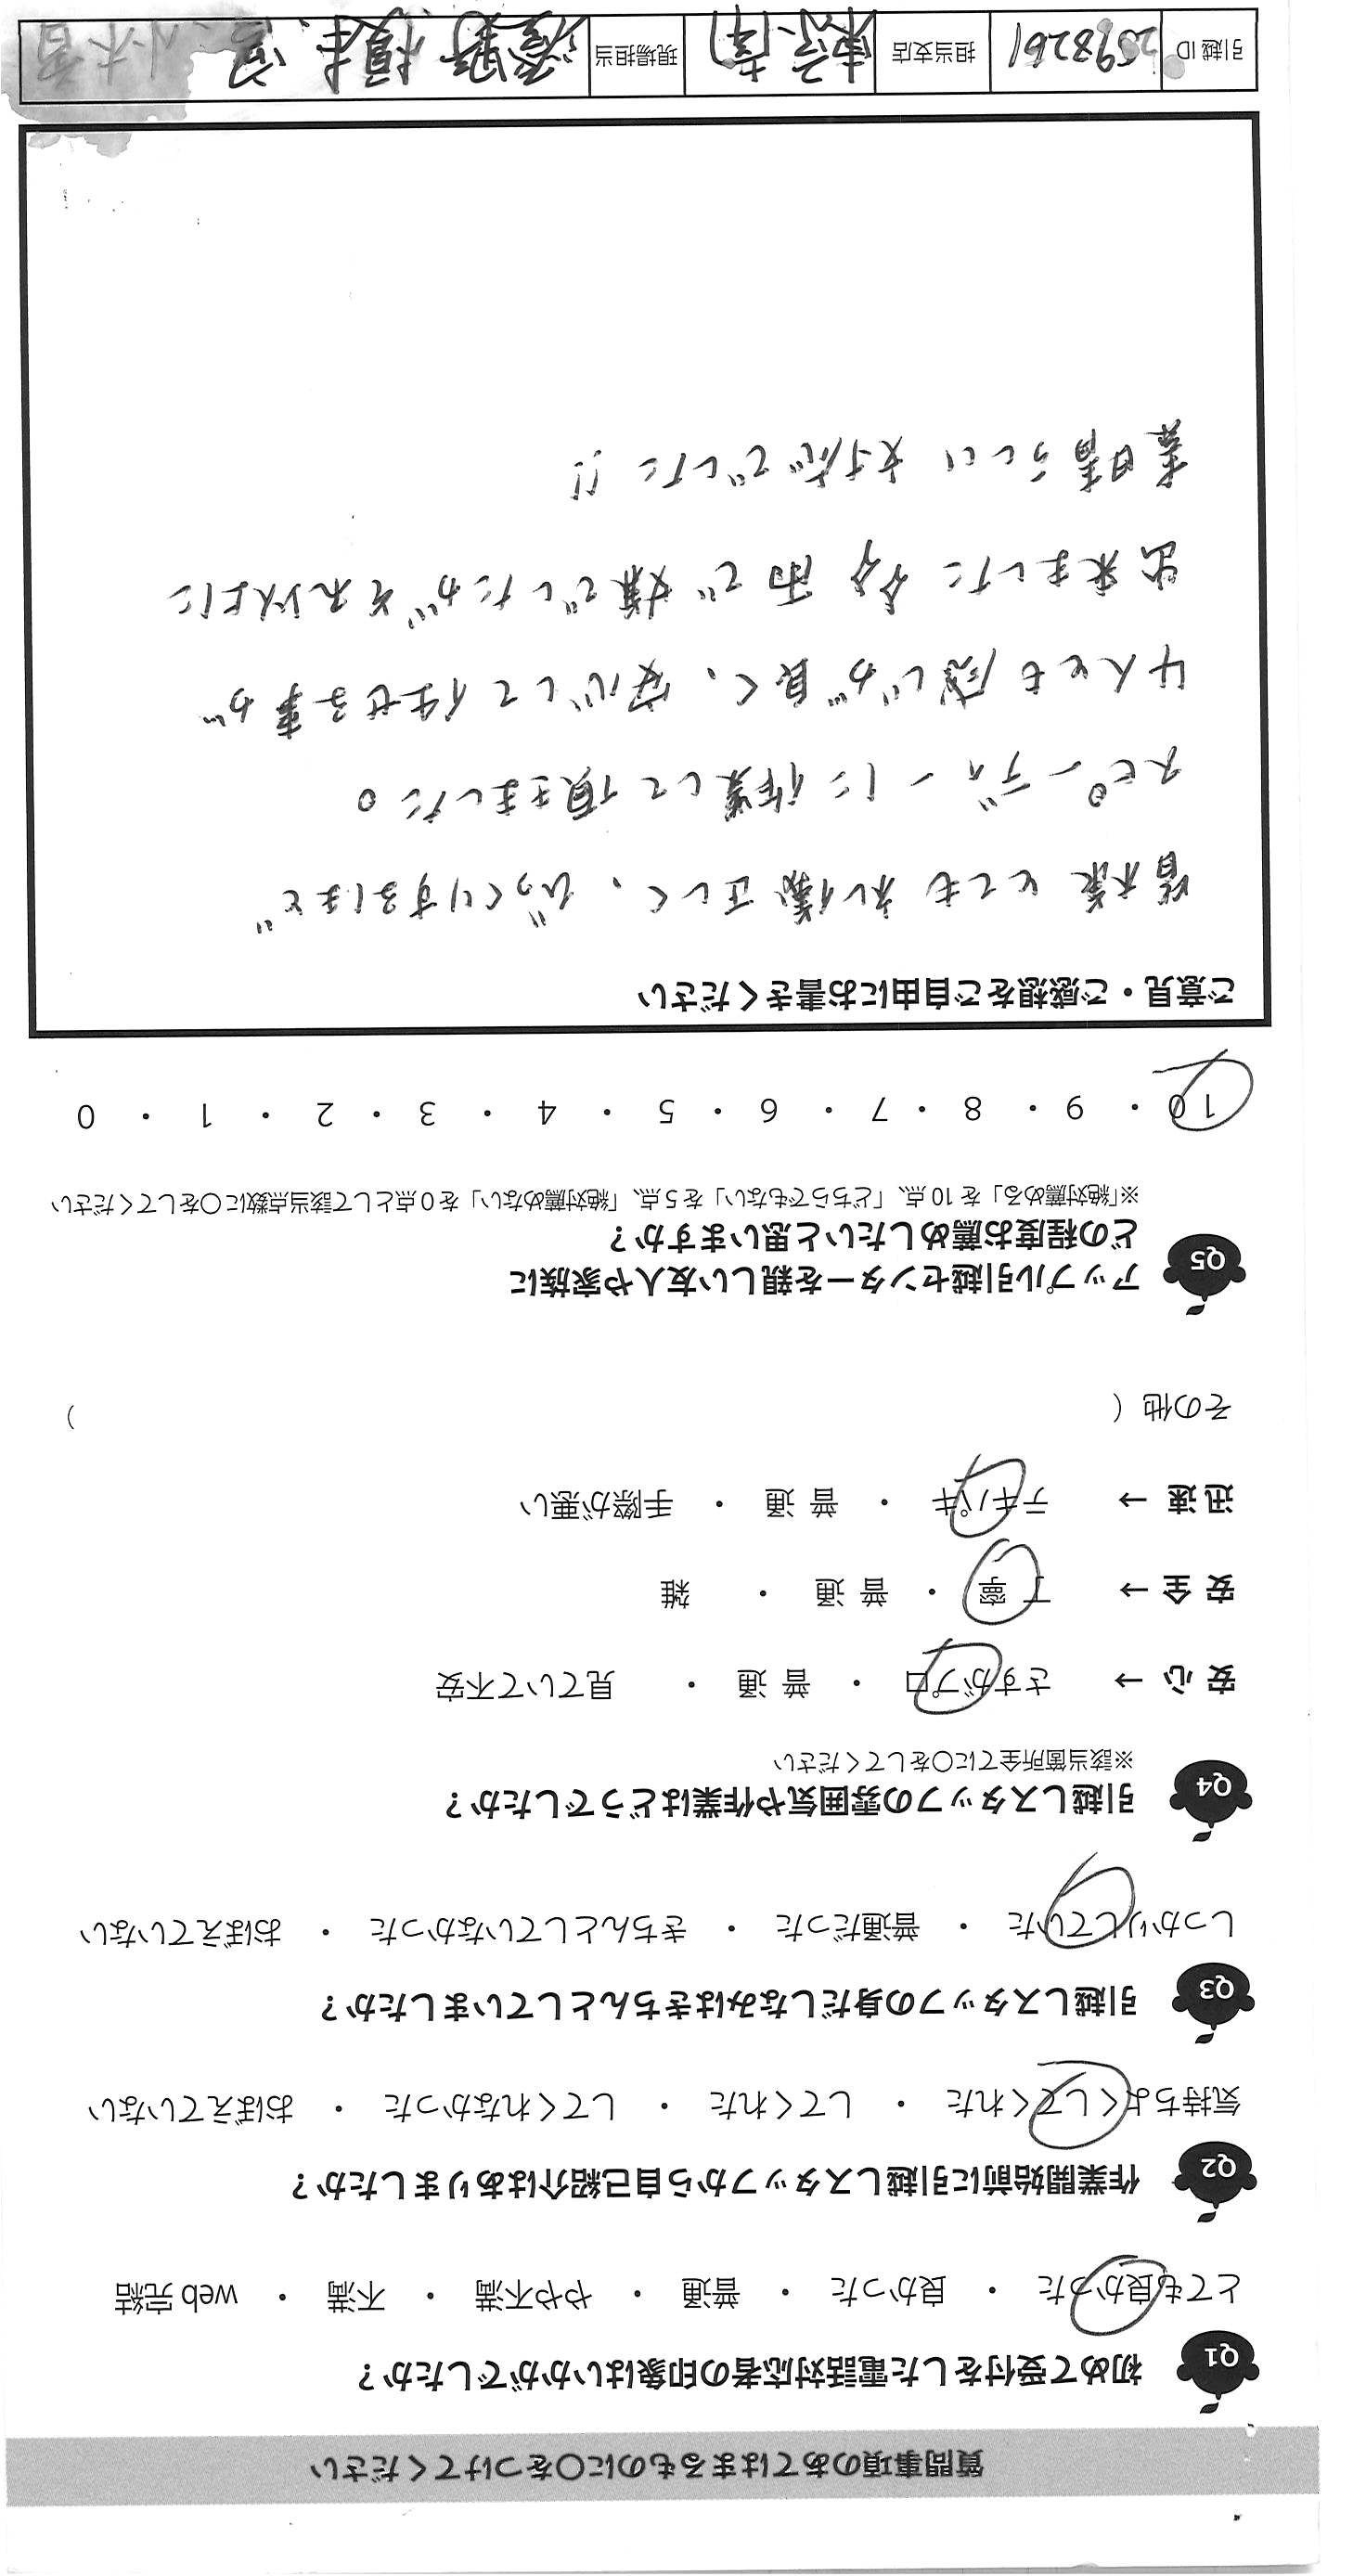 質問事項のあてはまるものに〇をつけてください
Q1 初めて受付をした電話対応者の印象はいかがでしたか？
とても良かった ・ 良かった ・ 普通 ・ やや不満 ・ 不満 ・ web 完結
Q2 作業開始前に引越しスタッフから自己紹介はありましたか？
気持ちよくしてくれた ・ してくれた ・ してくれなかった ・ おぼえていない
Q3 引越しスタッフの身だしなみはきちんとしていましたか？
しっかりしていた ・ 普通だった ・ きちんとしていなかった ・ おぼえていない
Q4 引越しスタッフの雰囲気や作業はどうでしたか？
※該当箇所全てに〇をしてください
安 心 → さすがプロ ・ 普 通 ・ 見ていて不安
安 全 → 丁 寧 ・ 普 通 ・ 雑
迅 速 → テキパキ ・ 普 通 ・ 手際が悪い
その他 （ ）
Q5 アップル引越センターを親しい友人や家族に
どの程度お薦めしたいと思いますか？
※「絶対薦める」を 10 点、「どちらでもない」を 5 点、「絶対薦めない」を 0 点として該当点数に〇をしてください
10 ・ 9 ・ 8 ・ 7 ・ 6 ・ 5 ・ 4 ・ 3 ・ 2 ・ 1 ・ 0
ご意見・ご感想をご自由にお書きください
皆様 とても 礼儀 正しく、びっくりするほど
スピーディーに作業して頂きました。
4人とも感じが良く、安心して任せる事が
出来ました 雨で でしたがそれ以上に
素晴らしい 対応でした!!
引越 ID 2598261 担当支店 東京南 現場担当